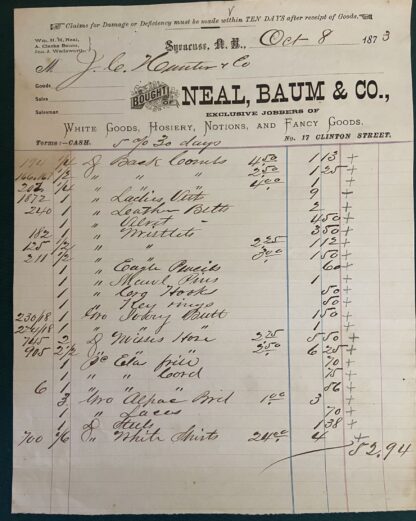 Claims for Damage or Deficiency must be made within TEN DAYS after receipt of Goods.
Wm. H. H. Neal,
A. Clarke Baum,
Jno. J. Wadsworth.
Syracuse, N. Y., Oct 8 1873
M J. C. Hunter & Co
Goods
Sales
Salesman
BOUGHT OF NEAL, BAUM & CO.,
EXCLUSIVE JOBBERS OF
White Goods, Hosiery, Notions, and Fancy Goods.
Terms:—CASH. 5% 30 days No. 17 CLINTON STREET.
1/4 Back Combs 4.50 1 13 +
1/2 " " 2.50 1 25 +
202 1/4 " " 4.00 1 +
1872 1 " Ladies 9 +
240 1 " Leather Belts 2 +
1 " 4 50 +
182 1 " 3 50 +
125 1/2 " " 2.25 1 12 +
211 1/2 " " 3.00 1 50 +
1 " Eagle Pencils 60 +
1 " Pins 1 +
1 " Hooks 50 +
1 " Key rings 50 +
230/18 1 Gro Ivory Butt 1 50 +
1 " " " 1 +
745 2 Misses Hose 2.75 5 50 +
905 2 1/2 " " 2.50 6 25 +
1 70 +
1 " " Cord 75 +
6 1 " " " 86 +
3 Gro Alpac Brd 1.00 3 +
1 " Laces 70 +
1 1 38 +
700 1/6 " White Shirts 24.00 4 +
52.94